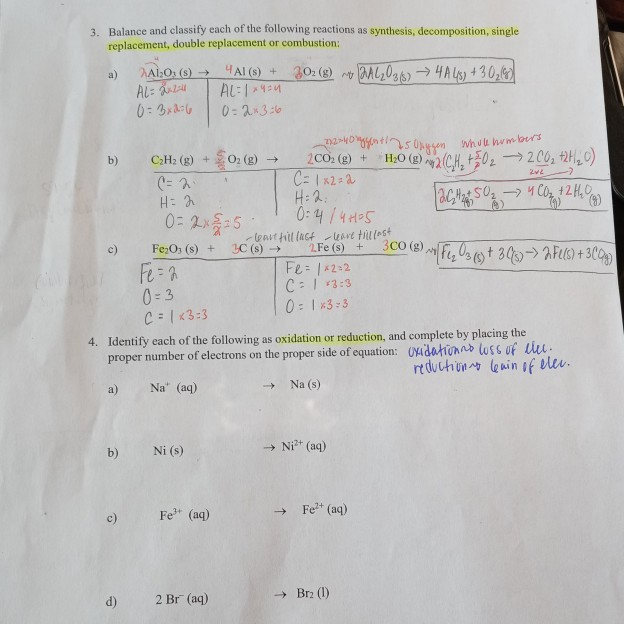 3. Balance and classify each of the following reactions as synthesis, decomposition, single
replacement, double replacement or combustion:
a) 2Al2O3 (s) → 4Al (s) + 3O2 (g) 2Al2O3(s) → 4Al(s) + 3O2(g)
AL= 2x2=4 AL= 1x4=4
O= 3x2=6 O= 2x3=6
whole numbers
b) C2H2 (g) + 5/2 O2 (g) → 2CO2 (g) + H2O (g) 2(C2H2 + 5/2 O2 → 2CO2 + 2H2O)
C= 2 C= 1x2=2
H= 2 H= 2 2C2H2(g) + 5O2(g) → 4CO2(g) + 2H2O(g)
O= 2x5/2=5 O= 4 / 4+1=5
leave till last leave till last
c) Fe2O3 (s) + 3C (s) → 2Fe (s) + 3CO (g) Fe2O3(s) + 3C(s) → 2Fe(s) + 3CO(g)
Fe= 2 Fe= 1x2=2
O= 3 C= 1x3=3
C= 1x3=3 O= 1x3=3
4. Identify each of the following as oxidation or reduction, and complete by placing the
proper number of electrons on the proper side of equation: oxidation loss of elec.
reduction gain of elec.
a) Na+ (aq) → Na (s)
b) Ni (s) → Ni2+ (aq)
c) Fe3+ (aq) → Fe2+ (aq)
d) 2 Br- (aq) → Br2 (l)